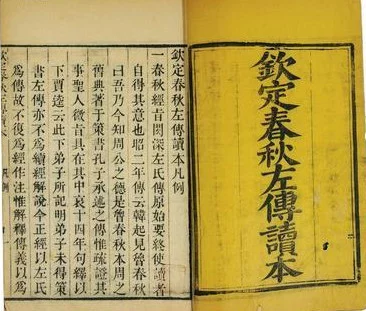 欽定春秋左傳讀本
欽定春秋左傳讀本凡例
一春秋經旨閎深左氏傳原始要終使讀者
自得其意也昭二年傳云韓起見魯春秋
曰吾乃今知周公之德是魯春秋本周之
舊典著于策書孔子承述之傳惟疏證其
事聖人微旨具在其中哀十四年句繹以
下賈逵云此下弟子所記明弟子未得策
書左傳亦不爲續經解說今正經以左氏
爲傳故不復爲經作注惟解釋傳義以爲